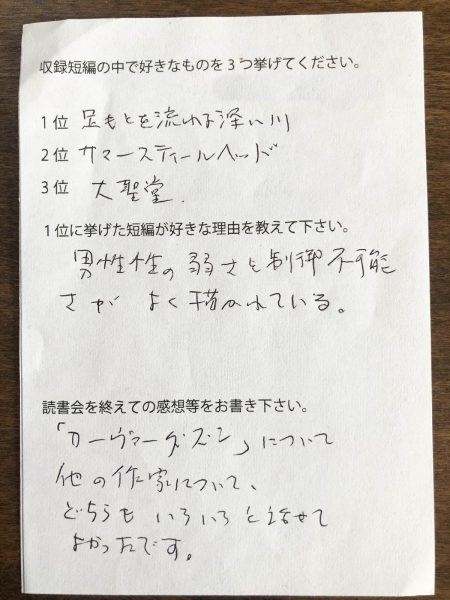 収録短編の中で好きなものを3つ挙げてください。
1位 足もとを流れる深い川
2位 サマースティールヘッド
3位 大聖堂.
1位に挙げた短編が好きな理由を教えて下さい。
男性性の弱さと制御不能
さが よく描かれている。
読書会を終えての感想等をお書き下さい。
「カーヴァーダズン」について
他の作家について、
どちらも いろいろと話せて
よかったです。